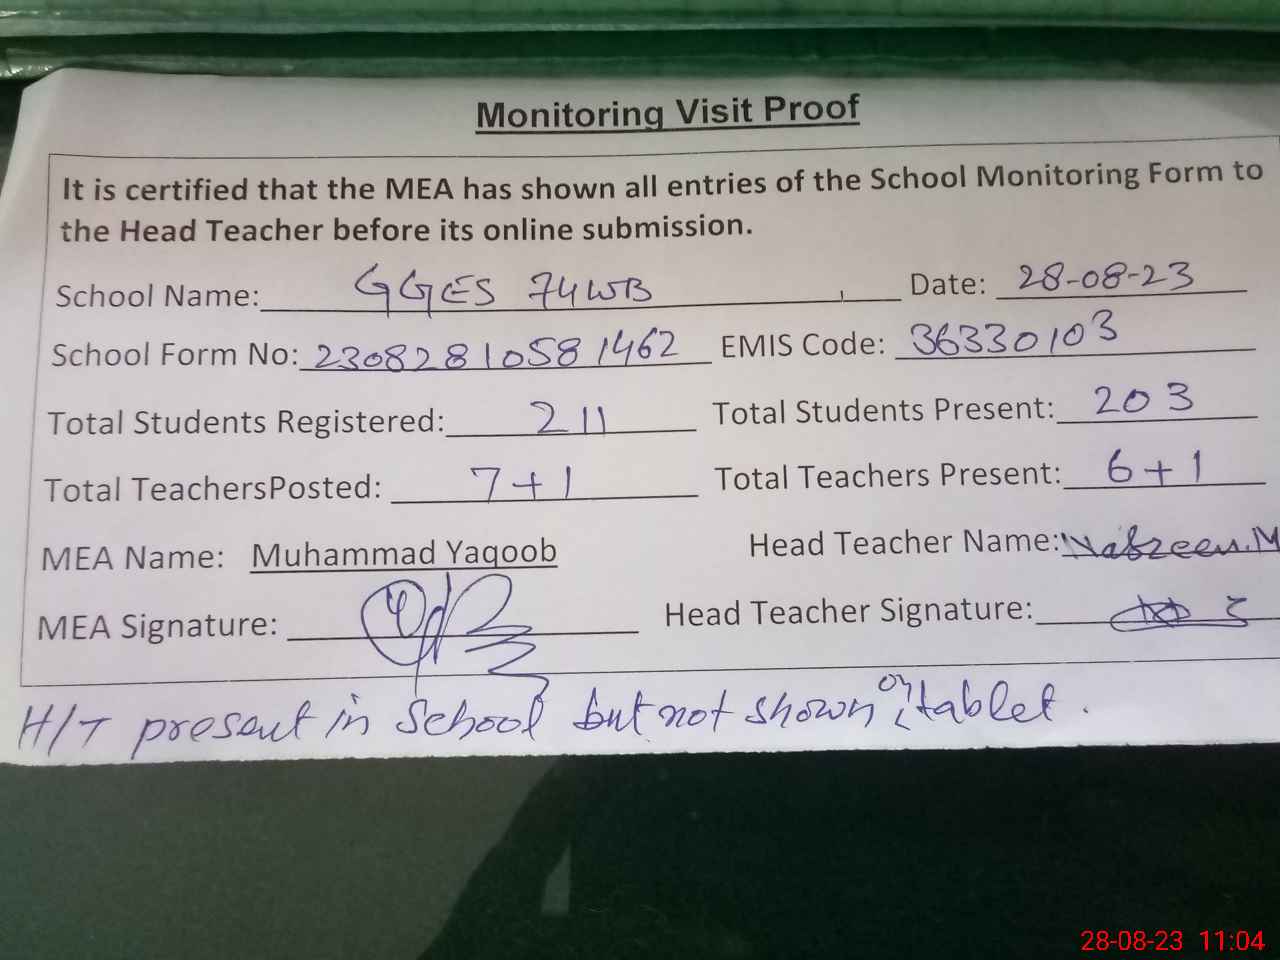 Monitoring Visit Proof
It is certified that the MEA has shown all entries of the School Monitoring Form to
the Head Teacher before its online submission.
School Name: GGES 74WB Date: 28-08-23
School Form No: 23082810581462 EMIS Code: 36330103
Total Students Registered: 211 Total Students Present: 203
Total TeachersPosted: 7+1 Total Teachers Present: 6+1
MEA Name: Muhammad Yaqoob Head Teacher Name:
MEA Signature: Head Teacher Signature:
H/T present in School but not shown on tablet.
28-08-23 11:04